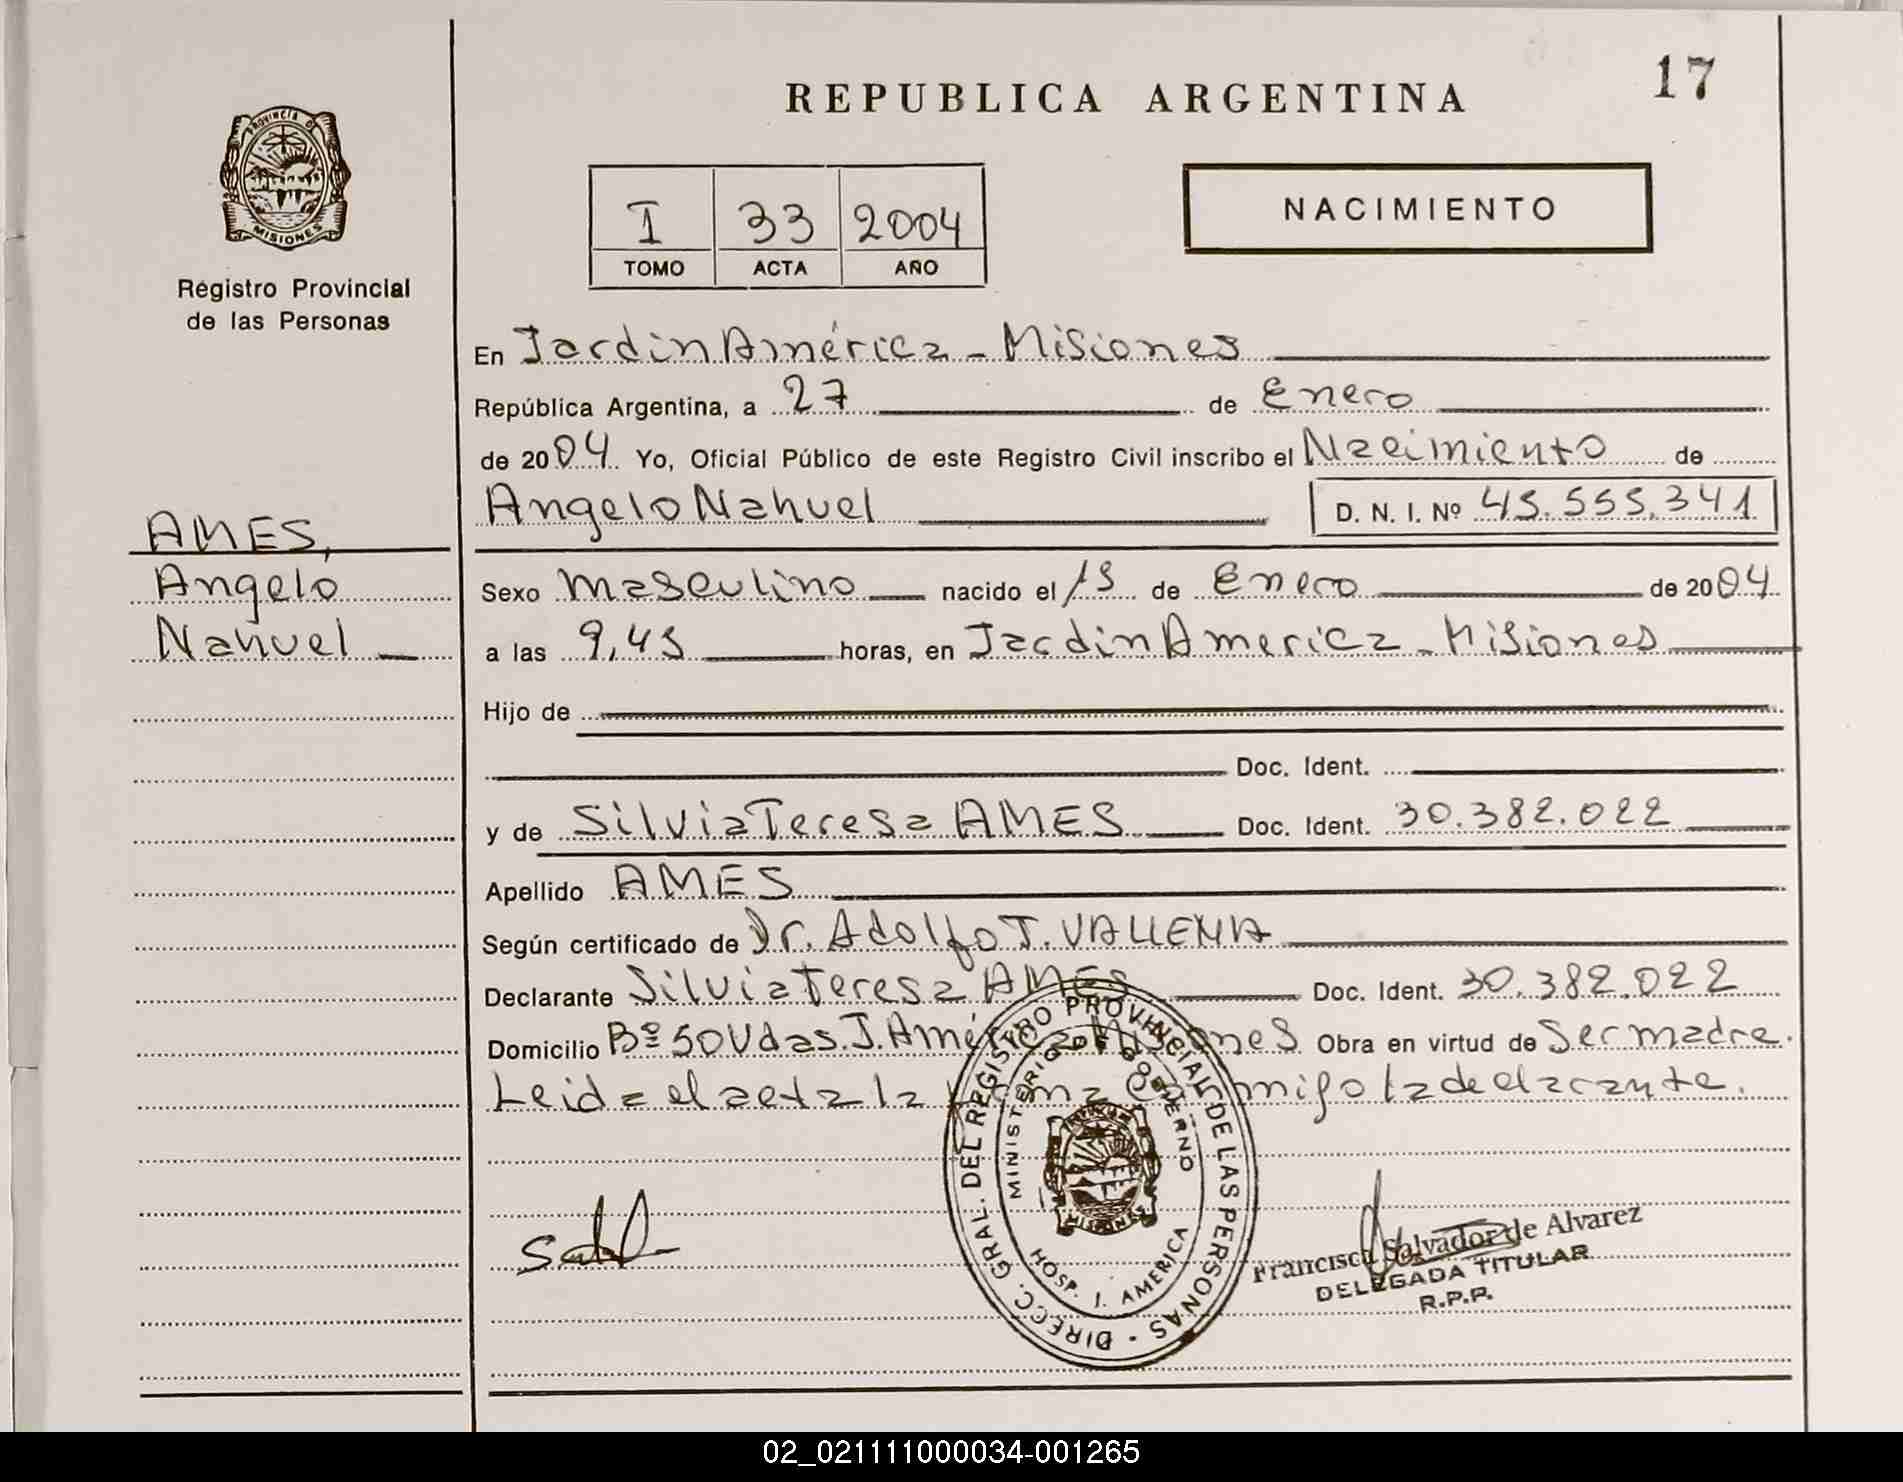 17
REPUBLICA ARGENTINA
PROVINCIA DE
MISIONES
Registro Provincial
de las Personas
I 33 2004
TOMO ACTA AÑO
NACIMIENTO
En Jardin América - Misiones
República Argentina, a 27 de Enero
de 2004 Yo, Oficial Público de este Registro Civil inscribo el Nacimiento de
Angelo Nahuel D. N. I. Nº 45.555.341
AMES,
Angelo
Nahuel
Sexo Masculino nacido el 15 de Enero de 2004
a las 9,45 horas, en Jardin America - Misiones
Hijo de
Doc. Ident.
y de Silvia Teresa AMES Doc. Ident. 30.382.022
Apellido AMES
Según certificado de Dr. Adolfo T.
Declarante Silvia Teresa AMES Doc. Ident. 30.382.022
Domicilio Bº 50 Vdas. J. América Misiones Obra en virtud de Ser madre.
Leida el acta la firma conmigo la declarante.
DIRECC. GRAL. DEL REGISTRO PROVINCIAL DE LAS PERSONAS
MINISTERIO DE GOBIERNO
MISIONES
HOSP. J. AMERICA
Francisca Salvador de Alvarez
DELEGADA TITULAR
R.P.P.
02_021111000034-001265